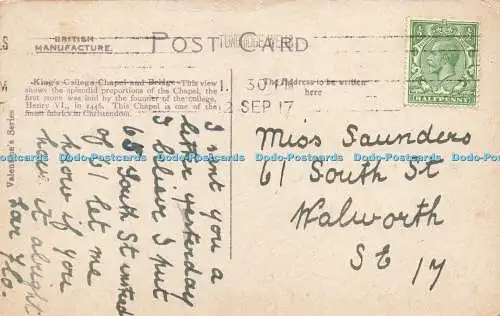 BRITISH
MANUFACTURE.
POST CARD
TUNBRIDGE WELLS
1. 30 PM
2 SEP 17
HALFPENNY
King's College Chapel and Bridge. This view
shows the splendid proportions of the Chapel, the
first stone was laid by the founder of the college,
Henry VI., in 1446. This Chapel is one of the
finest fabrics in Christendom.
Valentine's Series
The Address to be written
here
I sent you a
letter yesterday
I believe I put
65 South St instead
of 61 let me
know if you
have it alright
Flo.
Miss Saunders
61 South St
Walworth
SE 17
www.postcards-Europe.com